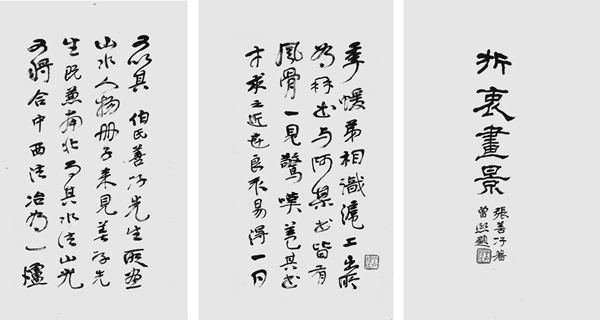 折衷畫景
張善孖著
曾熙題
季蝯弟相識滬上出所
為書与阿某書皆有
風骨一見驚嘆蓋其書
才求之近世良不易得一日
又以其伯氏善孖先生所畫
山水人物册子来見善孖先
生既兼南北而其水法山光
又將合中西法冶為一爐